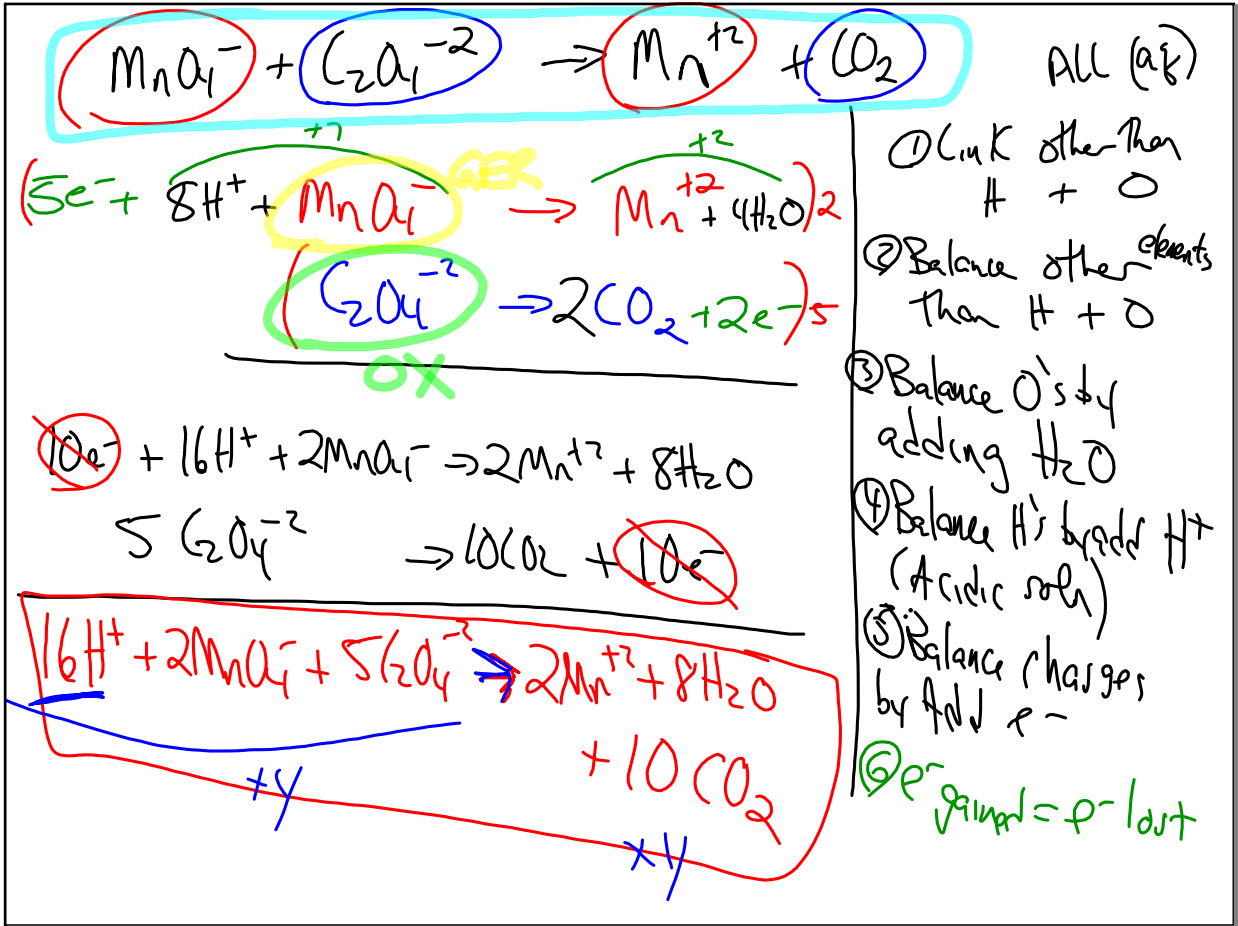 MnO₄⁻ + C₂O₄⁻² → Mn⁺² + CO₂
ALL (aq)
+7 +2
(5e⁻ + 8H⁺ + MnO₄⁻ → Mn⁺² + 4H₂O)2
GER
(C₂O₄⁻² → 2CO₂ + 2e⁻)5
OX
10e⁻ + 16H⁺ + 2MnO₄⁻ → 2Mn⁺² + 8H₂O
5 C₂O₄⁻² → 10CO₂ + 10e⁻
16H⁺ + 2MnO₄⁻ + 5C₂O₄⁻² → 2Mn⁺² + 8H₂O
+ 10 CO₂
+4
+4
① Link other than
H + O
② Balance other elements
than H + O
③ Balance O's by
adding H₂O
④ Balance H's by add H⁺
(Acidic soln)
⑤ Balance charges
by Add e⁻
⑥ e⁻ gained = e⁻ lost